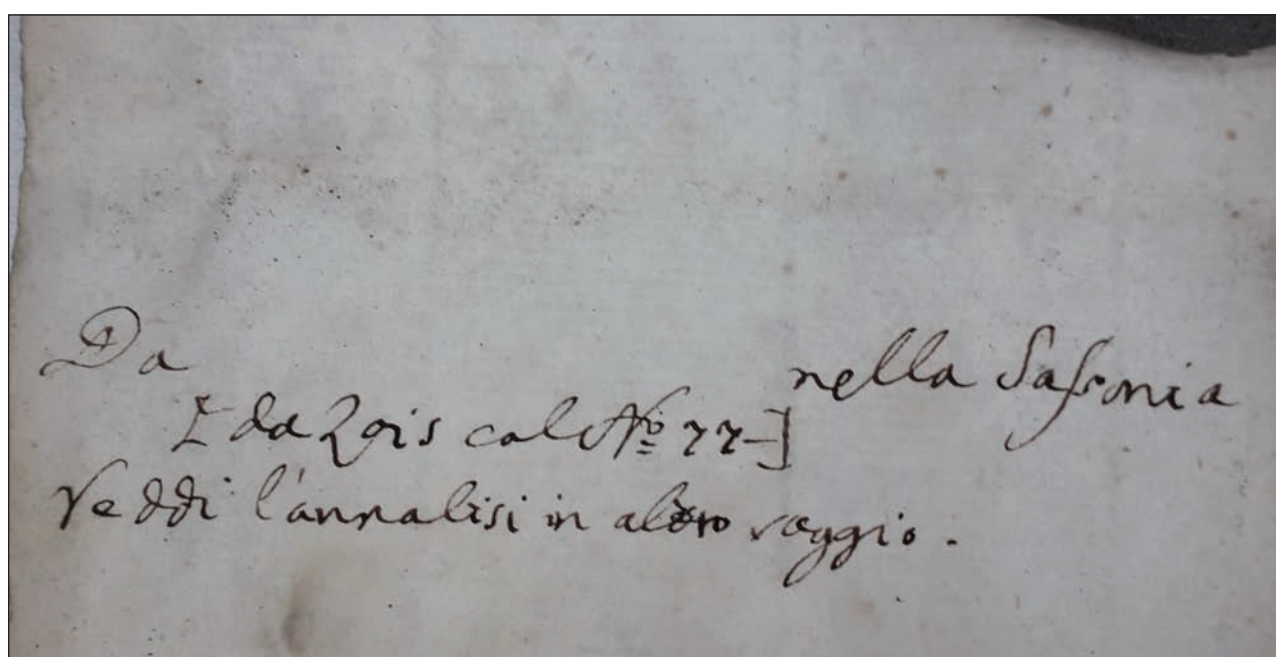 Da nella Sassonia
[da Zois col No 77-]
Veddi l'annalisi in altro saggio.